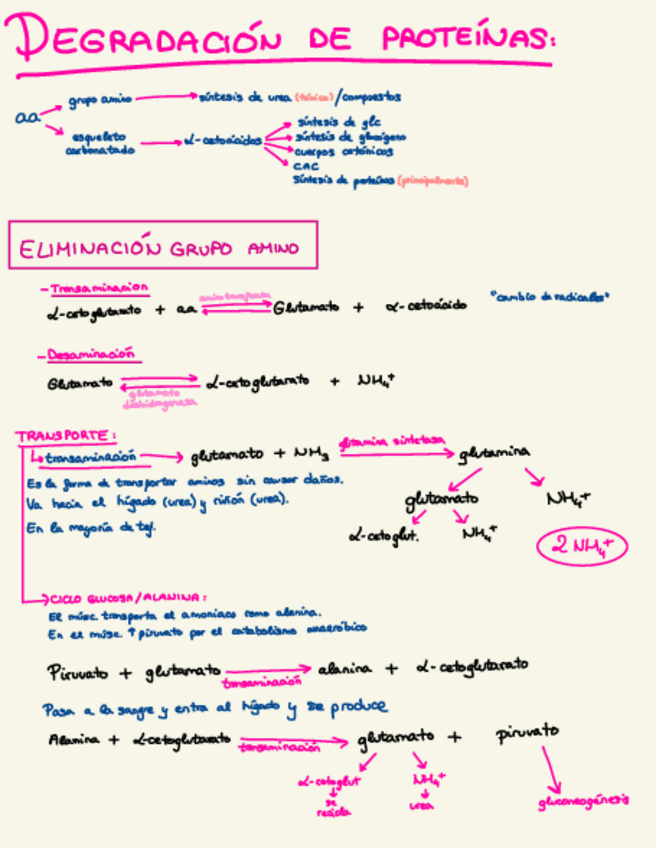 DEGRADACIÓN DE PROTEÍNAS:
aa
grupo amino → síntesis de urea (tóxico) / compuestos
esqueleto carbonatado → α-cetoácidos
síntesis de glc
síntesis de glucógeno
cuerpos cetónicos
CAC
Síntesis de proteínas (principalmente)
ELIMINACIÓN GRUPO AMINO
- Transaminación
α-cetoglutarato + aa aminotransferasa Glutamato + α-cetoácido "cambio de radicales"
- Desaminación
Glutamato glutamato deshidrogenasa α-cetoglutarato + NH₄⁺
TRANSPORTE:
transaminación → glutamato + NH₃ glutamina sintetasa → glutamina
Es la forma de transportar aminos sin causar daños.
Va hacia el hígado (urea) y riñón (urea).
En la mayoría de tej.
glutamato NH₄⁺
α-cetoglut. NH₄⁺
2 NH₄⁺
CICLO GLUCOSA/ALANINA:
El músc. transporta el amoniaco como alanina.
En el músc. ↑ piruvato por el catabolismo anaeróbico
Piruvato + glutamato transaminación → alanina + α-cetoglutarato
Pasa a la sangre y entra al hígado y se produce
Alanina + α-cetoglutarato transaminación → glutamato + piruvato
α-cetoglut ↓ se recicla
NH₄⁺ ↓ urea
gluconeogénesis